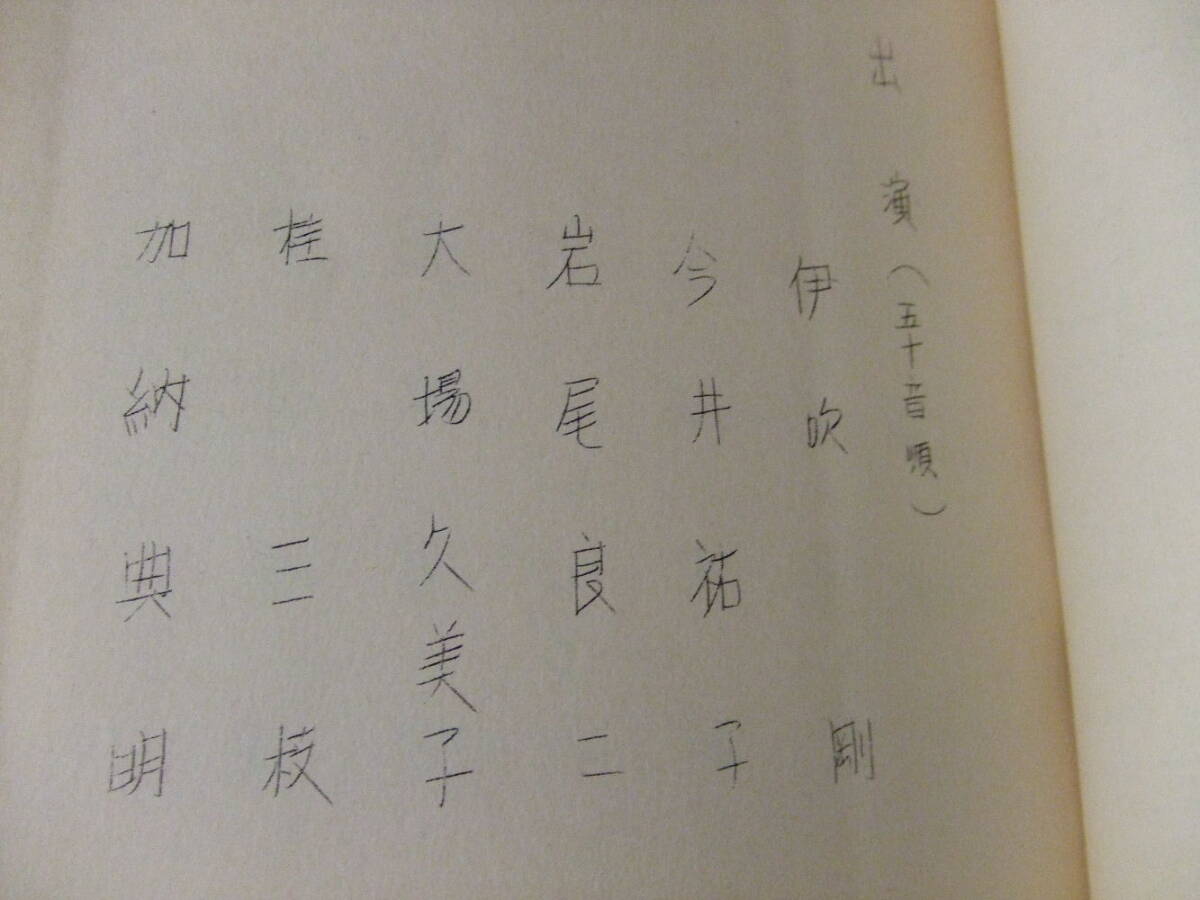 出演(五十音順)
伊吹剛
今井祐子
岩尾良二
大場久美子
桂三枝
加納典明